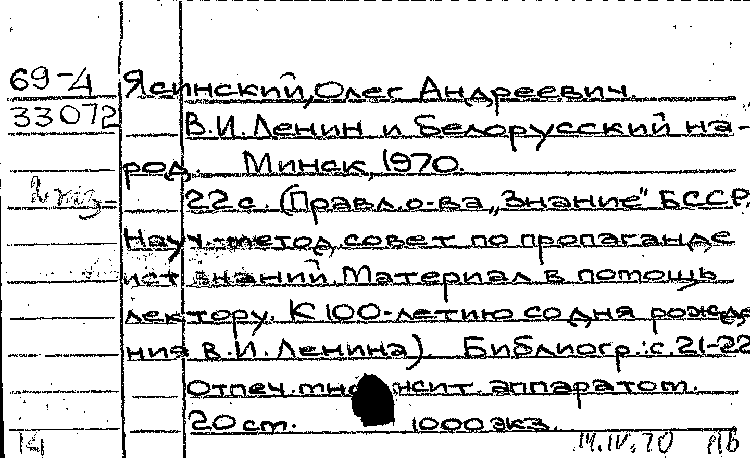 69-4 Ясинский, Олег Андреевич.
33072 В.И. Ленин и Белорусский на-
род. Минск, 1970.
2 экз. 22 с. (Правл. о-ва „Знание" БССР.
Науч.-метод. совет по пропаганде
ист. знаний. Материал в помощь
лектору. К 100-летию со дня рожде-
ния В.И. Ленина). Библиогр.: с. 21-22
Отпеч. множит. аппаратом.
20 ст. 1000 экз.
14 14.IV.70